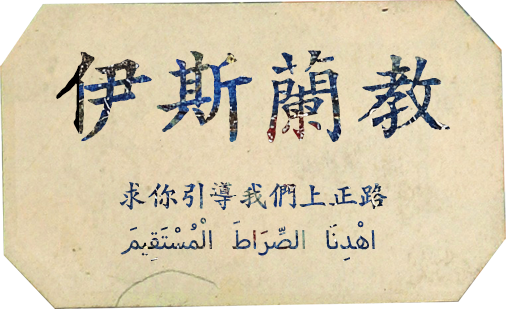 伊斯蘭教
求你引導我們上正路
اهْدِنَا الصِّرَاطَ الْمُسْتَقِيمَ